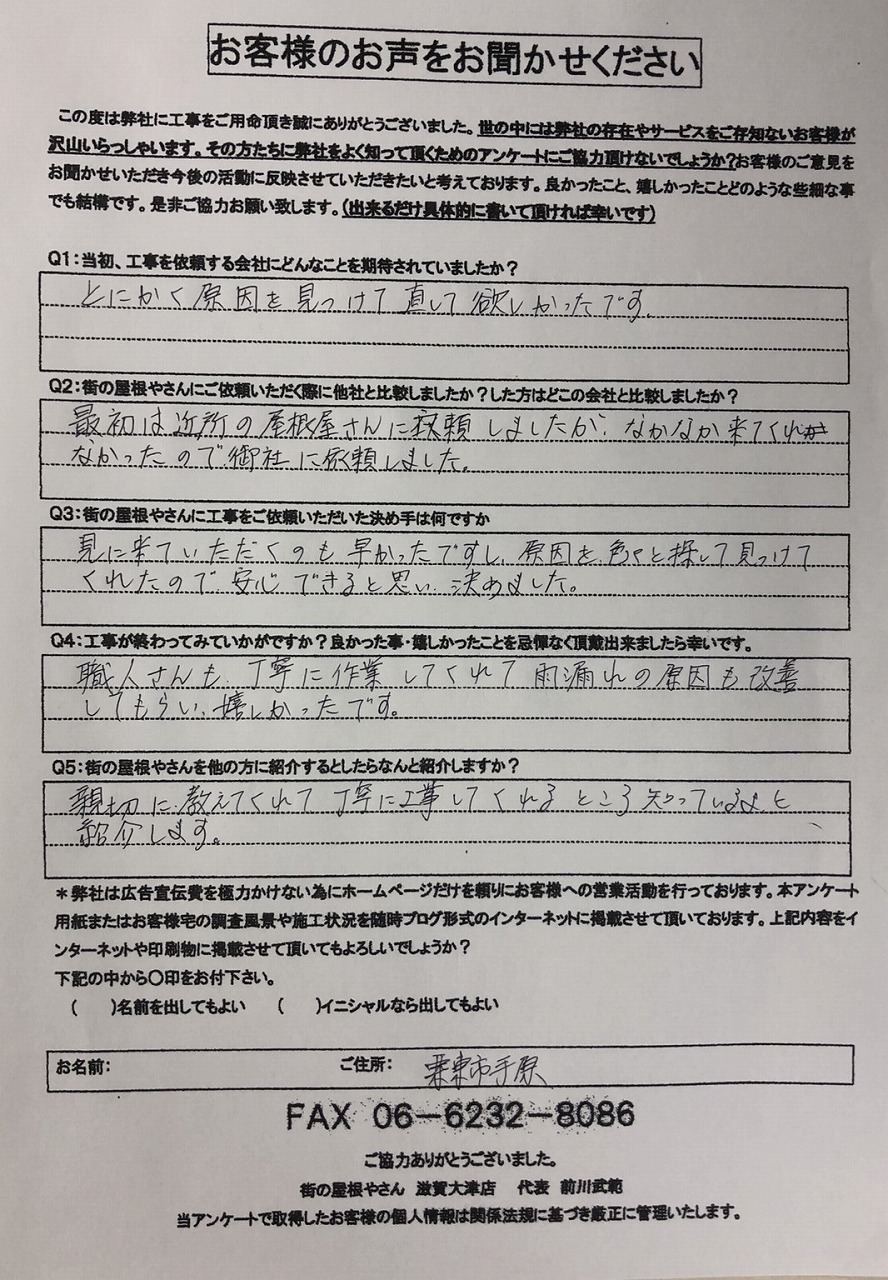 お客様のお声をお聞かせください
この度は弊社に工事をご用命頂き誠にありがとうございました。世の中には弊社の存在やサービスをご存知ないお客様が
沢山いらっしゃいます。その方たちに弊社をよく知って頂くためのアンケートにご協力頂けないでしょうか?お客様のご意見を
お聞かせいただき今後の活動に反映させていただきたいと考えております。良かったこと、嬉しかったことどのような些細な事
でも結構です。是非ご協力お願い致します。(出来るだけ具体的に書いて頂ければ幸いです)
Q1:当初、工事を依頼する会社にどんなことを期待されていましたか?
とにかく原因を見つけて直して欲しかったです。
Q2:街の屋根やさんにご依頼いただく際に他社と比較しましたか?した方はどこの会社と比較しましたか?
最初は近所の屋根屋さんに依頼しましたが、なかなか来てくれ
なかったので御社に依頼しました。
Q3:街の屋根やさんに工事をご依頼いただいた決め手は何ですか
見に来ていただくのも早かったですし、原因を色々と探して見つけて
くれたので、安心できると思い、決めました。
Q4:工事が終わってみていかがですか?良かった事・嬉しかったことを忌憚なく頂戴出来ましたら幸いです。
職人さんも、丁寧に作業してくれて雨漏れの原因も改善
してもらい、嬉しかったです。
Q5:街の屋根やさんを他の方に紹介するとしたらなんと紹介しますか?
親切に教えてくれて丁寧に工事してくれるところ知っているよと
紹介します。
*弊社は広告宣伝費を極力かけない為にホームページだけを頼りにお客様への営業活動を行っております。本アンケート
用紙またはお客様宅の調査風景や施工状況を随時ブログ形式のインターネットに掲載させて頂いております。上記内容をイ
ンターネットや印刷物に掲載させて頂いてもよろしいでしょうか?
下記の中から〇印をお付下さい。
( )名前を出してもよい ( )イニシャルなら出してもよい
お名前: ご住所: 栗東市手原
FAX 06-6232-8086
ご協力ありがとうございました。
街の屋根やさん 滋賀大津店 代表 前川武範
当アンケートで取得したお客様の個人情報は関係法規に基づき厳正に管理いたします。